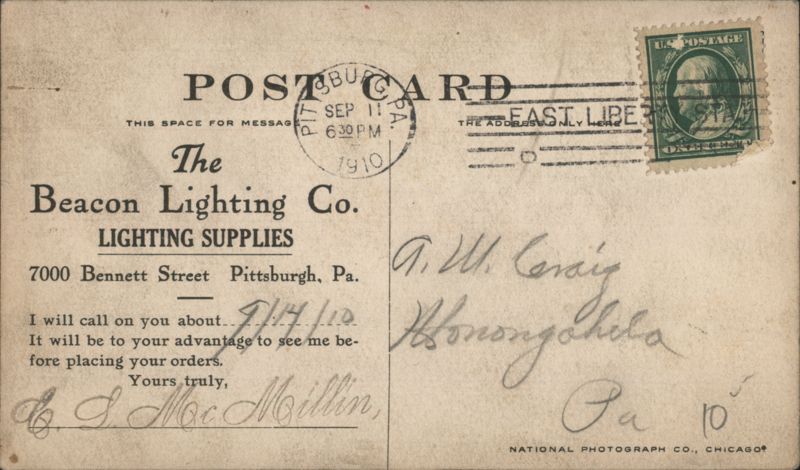 POST CARD
PITTSBURG, PA.
SEP 11
6 30 PM
1910
EAST LIBERTY STA
U.S. POSTAGE
ONE CENT
THIS SPACE FOR MESSAGE
THE ADDRESS ONLY HERE
The
Beacon Lighting Co.
LIGHTING SUPPLIES
7000 Bennett Street Pittsburgh, Pa.
I will call on you about 9/14/10
It will be to your advantage to see me be-
fore placing your orders.
Yours truly,
C. S. McMillin,
A. W. Craig
Monongahela
Pa 10
NATIONAL PHOTOGRAPH CO., CHICAGO